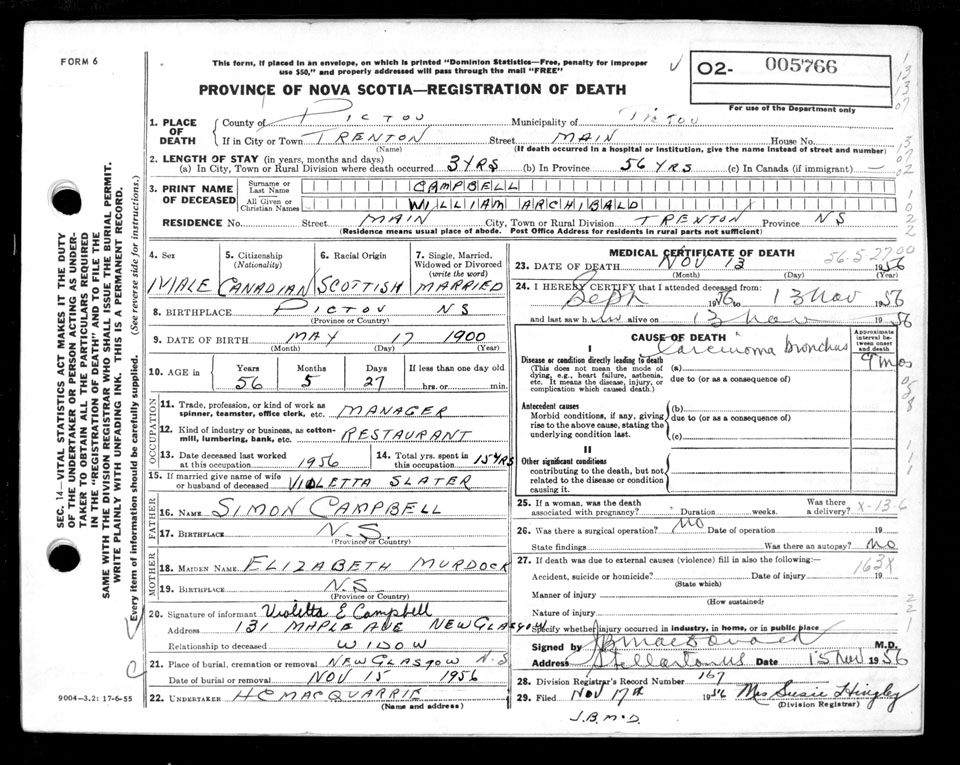 FORM 6
This form, if placed in an envelope, on which is printed "Dominion Statistics—Free, penalty for improper
use $50," and properly addressed will pass through the mail "FREE"
02- 005766
For use of the Department only
PROVINCE OF NOVA SCOTIA—REGISTRATION OF DEATH
1. PLACE OF DEATH
County of PICTOU Municipality of PICTOU
If in City or Town TRENTON Street MAIN House No.
(Name) (If death occurred in a hospital or institution, give the name instead of street and number)
2. LENGTH OF STAY (in years, months and days)
(a) In City, Town or Rural Division where death occurred 3 YRS (b) In Province 56 YRS (c) In Canada (if immigrant)
3. PRINT NAME OF DECEASED
Surname or Last Name CAMPBELL
All Given or Christian Names WILLIAM ARCHIBALD
RESIDENCE No. Street MAIN City, Town or Rural Division TRENTON Province NS
(Residence means usual place of abode. Post Office Address for residents in rural parts not sufficient)
4. Sex 5. Citizenship (Nationality) 6. Racial Origin 7. Single, Married, Widowed or Divorced (write the word)
MALE CANADIAN SCOTTISH MARRIED
8. BIRTHPLACE PICTOU NS
(Province or Country)
9. DATE OF BIRTH MAY 17 1900
(Month) (Day) (Year)
10. AGE in Years Months Days If less than one day old
56 5 27 hrs. or min.
OCCUPATION
11. Trade, profession or kind of work as
spinner, teamster, office clerk, etc. MANAGER
12. Kind of industry or business, as cotton-
mill, lumbering, bank, etc. RESTAURANT
13. Date deceased last worked
at this occupation 1956
14. Total yrs. spent in
this occupation 15 YRS
15. If married give name of wife
or husband of deceased VIOLETTA SLATER
FATHER
16. NAME SIMON CAMPBELL
17. BIRTHPLACE N.S.
(Province or Country)
MOTHER
18. MAIDEN NAME ELIZABETH MURDOCK
19. BIRTHPLACE N.S.
(Province or Country)
20. Signature of informant Violetta E Campbell
Address 131 MAPLE AVE NEW GLASGOW
Relationship to deceased WIDOW
21. Place of burial, cremation or removal NEW GLASGOW N.S
Date of burial or removal NOV 15 1956
22. UNDERTAKER H C MACQUARRIE
(Name and address)
9004-3.2: 17-6-55
MEDICAL CERTIFICATE OF DEATH
56-5-27
23. DATE OF DEATH NOV 13 1956
(Month) (Day)
24. I HEREBY CERTIFY that I attended deceased from:
Sept 1956 to 13 Nov 1956
and last saw him alive on 13 Nov 1956
CAUSE OF DEATH
Approximate interval between onset and death
I
Disease or condition directly leading to death
(This does not mean the mode of
dying, e.g., heart failure, asthenia,
etc. It means the disease, injury, or
complication which caused death.)
(a) Carcinoma bronchus 9 mos
due to (or as a consequence of)
Antecedent causes
Morbid conditions, if any, giving
rise to the above cause, stating the
underlying condition last.
(b)
due to (or as a consequence of)
(c)
II
Other significant conditions
contributing to the death, but not
related to the disease or condition
causing it.
25. If a woman, was the death
associated with pregnancy? Duration weeks. Was there a delivery? X-13-6
26. Was there a surgical operation? No Date of operation 19
State findings Was there an autopsy? No
27. If death was due to external causes (violence) fill in also the following:
163X
Accident, suicide or homicide? Date of injury 19
(State which)
Manner of injury
(How sustained)
Nature of injury
Specify whether injury occurred in industry, in home, or in public place
Signed by M.D.
Address Stellarton NS Date 15 Nov 1956
28. Division Registrar's Record Number 167
29. Filed Nov 17th 1956 Mrs Susie Hingley
(Division Registrar)
J.B.McD.
SEC. 14—VITAL STATISTICS ACT MAKES IT THE DUTY
OF THE UNDERTAKER OR PERSON ACTING AS UNDER-
TAKER TO OBTAIN ALL THE PARTICULARS REQUIRED
IN THE "REGISTRATION OF DEATH" AND TO FILE THE
SAME WITH THE DIVISION REGISTRAR WHO SHALL ISSUE THE BURIAL PERMIT.
WRITE PLAINLY WITH UNFADING INK. THIS IS A PERMANENT RECORD.
Every item of information should be carefully supplied. (See reverse side for instructions.)